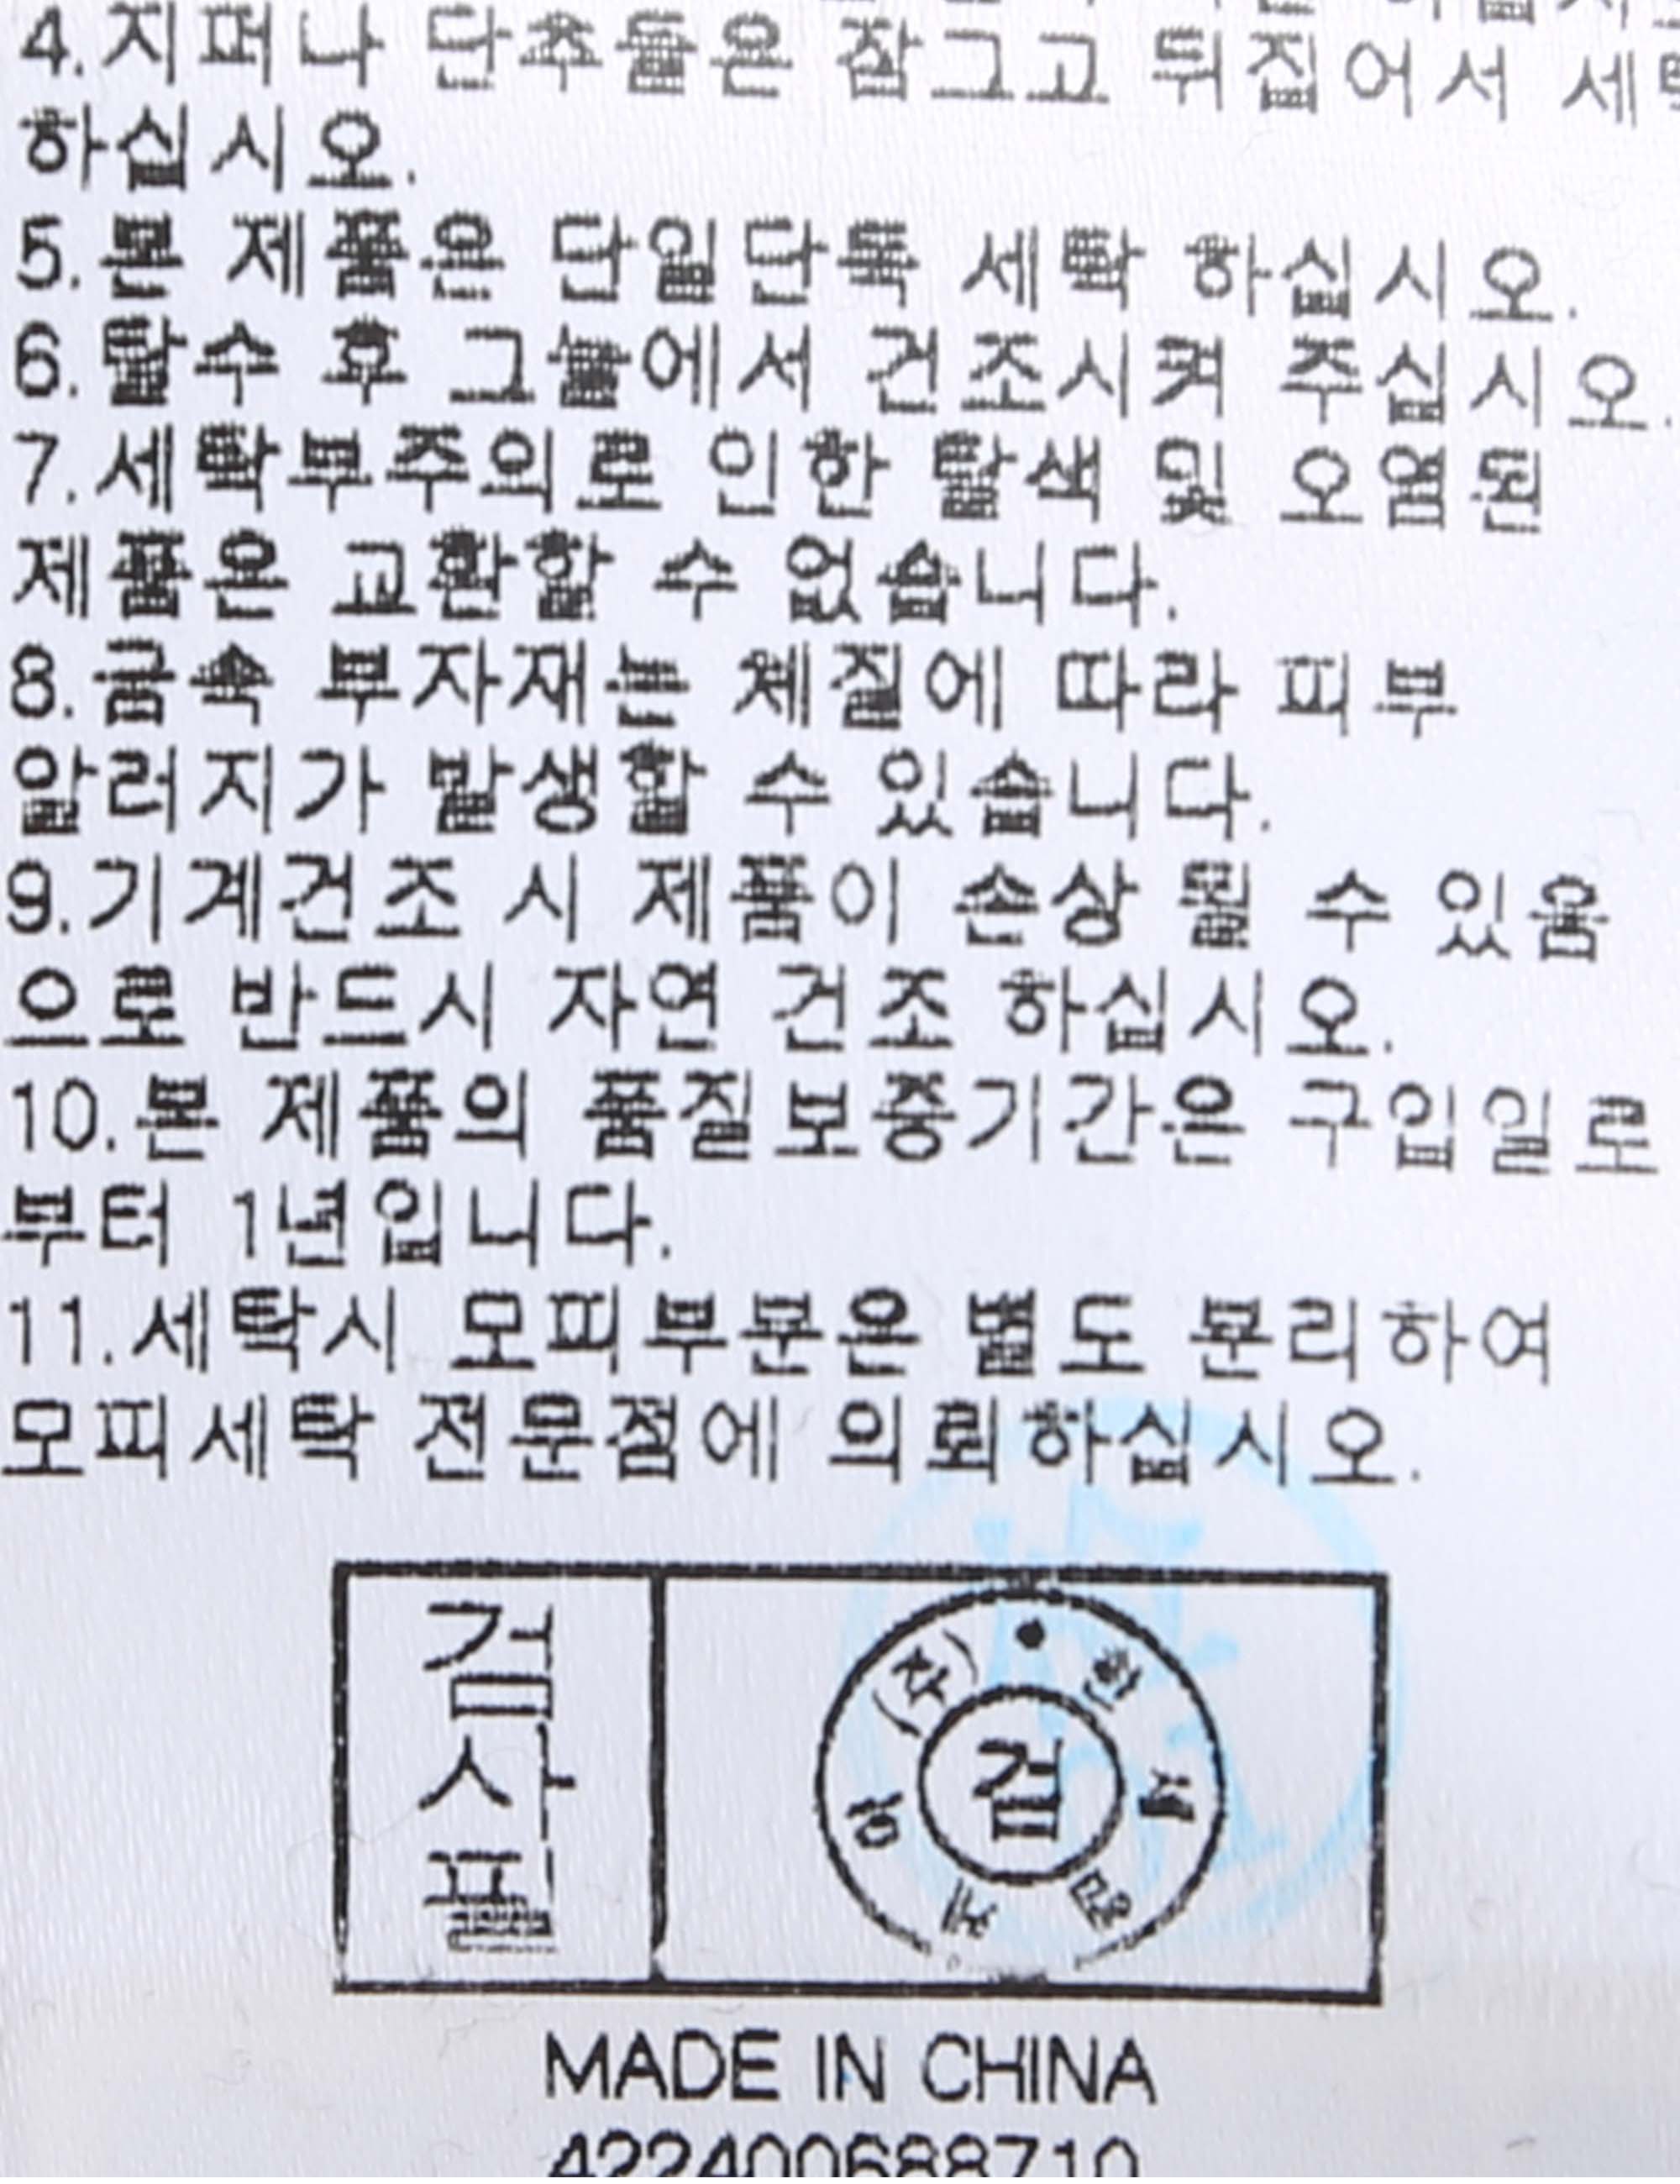 4.지퍼나 단추들은 잠그고 뒤집어서
하십시오.
5.본 제품은 단일단독 세탁 하십시오.
6.탈수 후 그늘에서 건조시켜 주십시오.
7.세탁부주의로 인한 탈색 및 오염된
제품은 교환할 수 없습니다.
8.금속 부자재는 체질에 따라 피부
알러지가 발생할 수 있습니다.
9.기계건조 시 제품이 손상 될 수 있음
으로 반드시 자연 건조 하십시오.
10.본 제품의 품질보증기간은 구입일로
부터 1년입니다.
11.세탁시 모피부분은 별도 분리하여
모피세탁 전문점에 의뢰하십시오.
검사필
(주)
검
MADE IN CHINA
422400688710